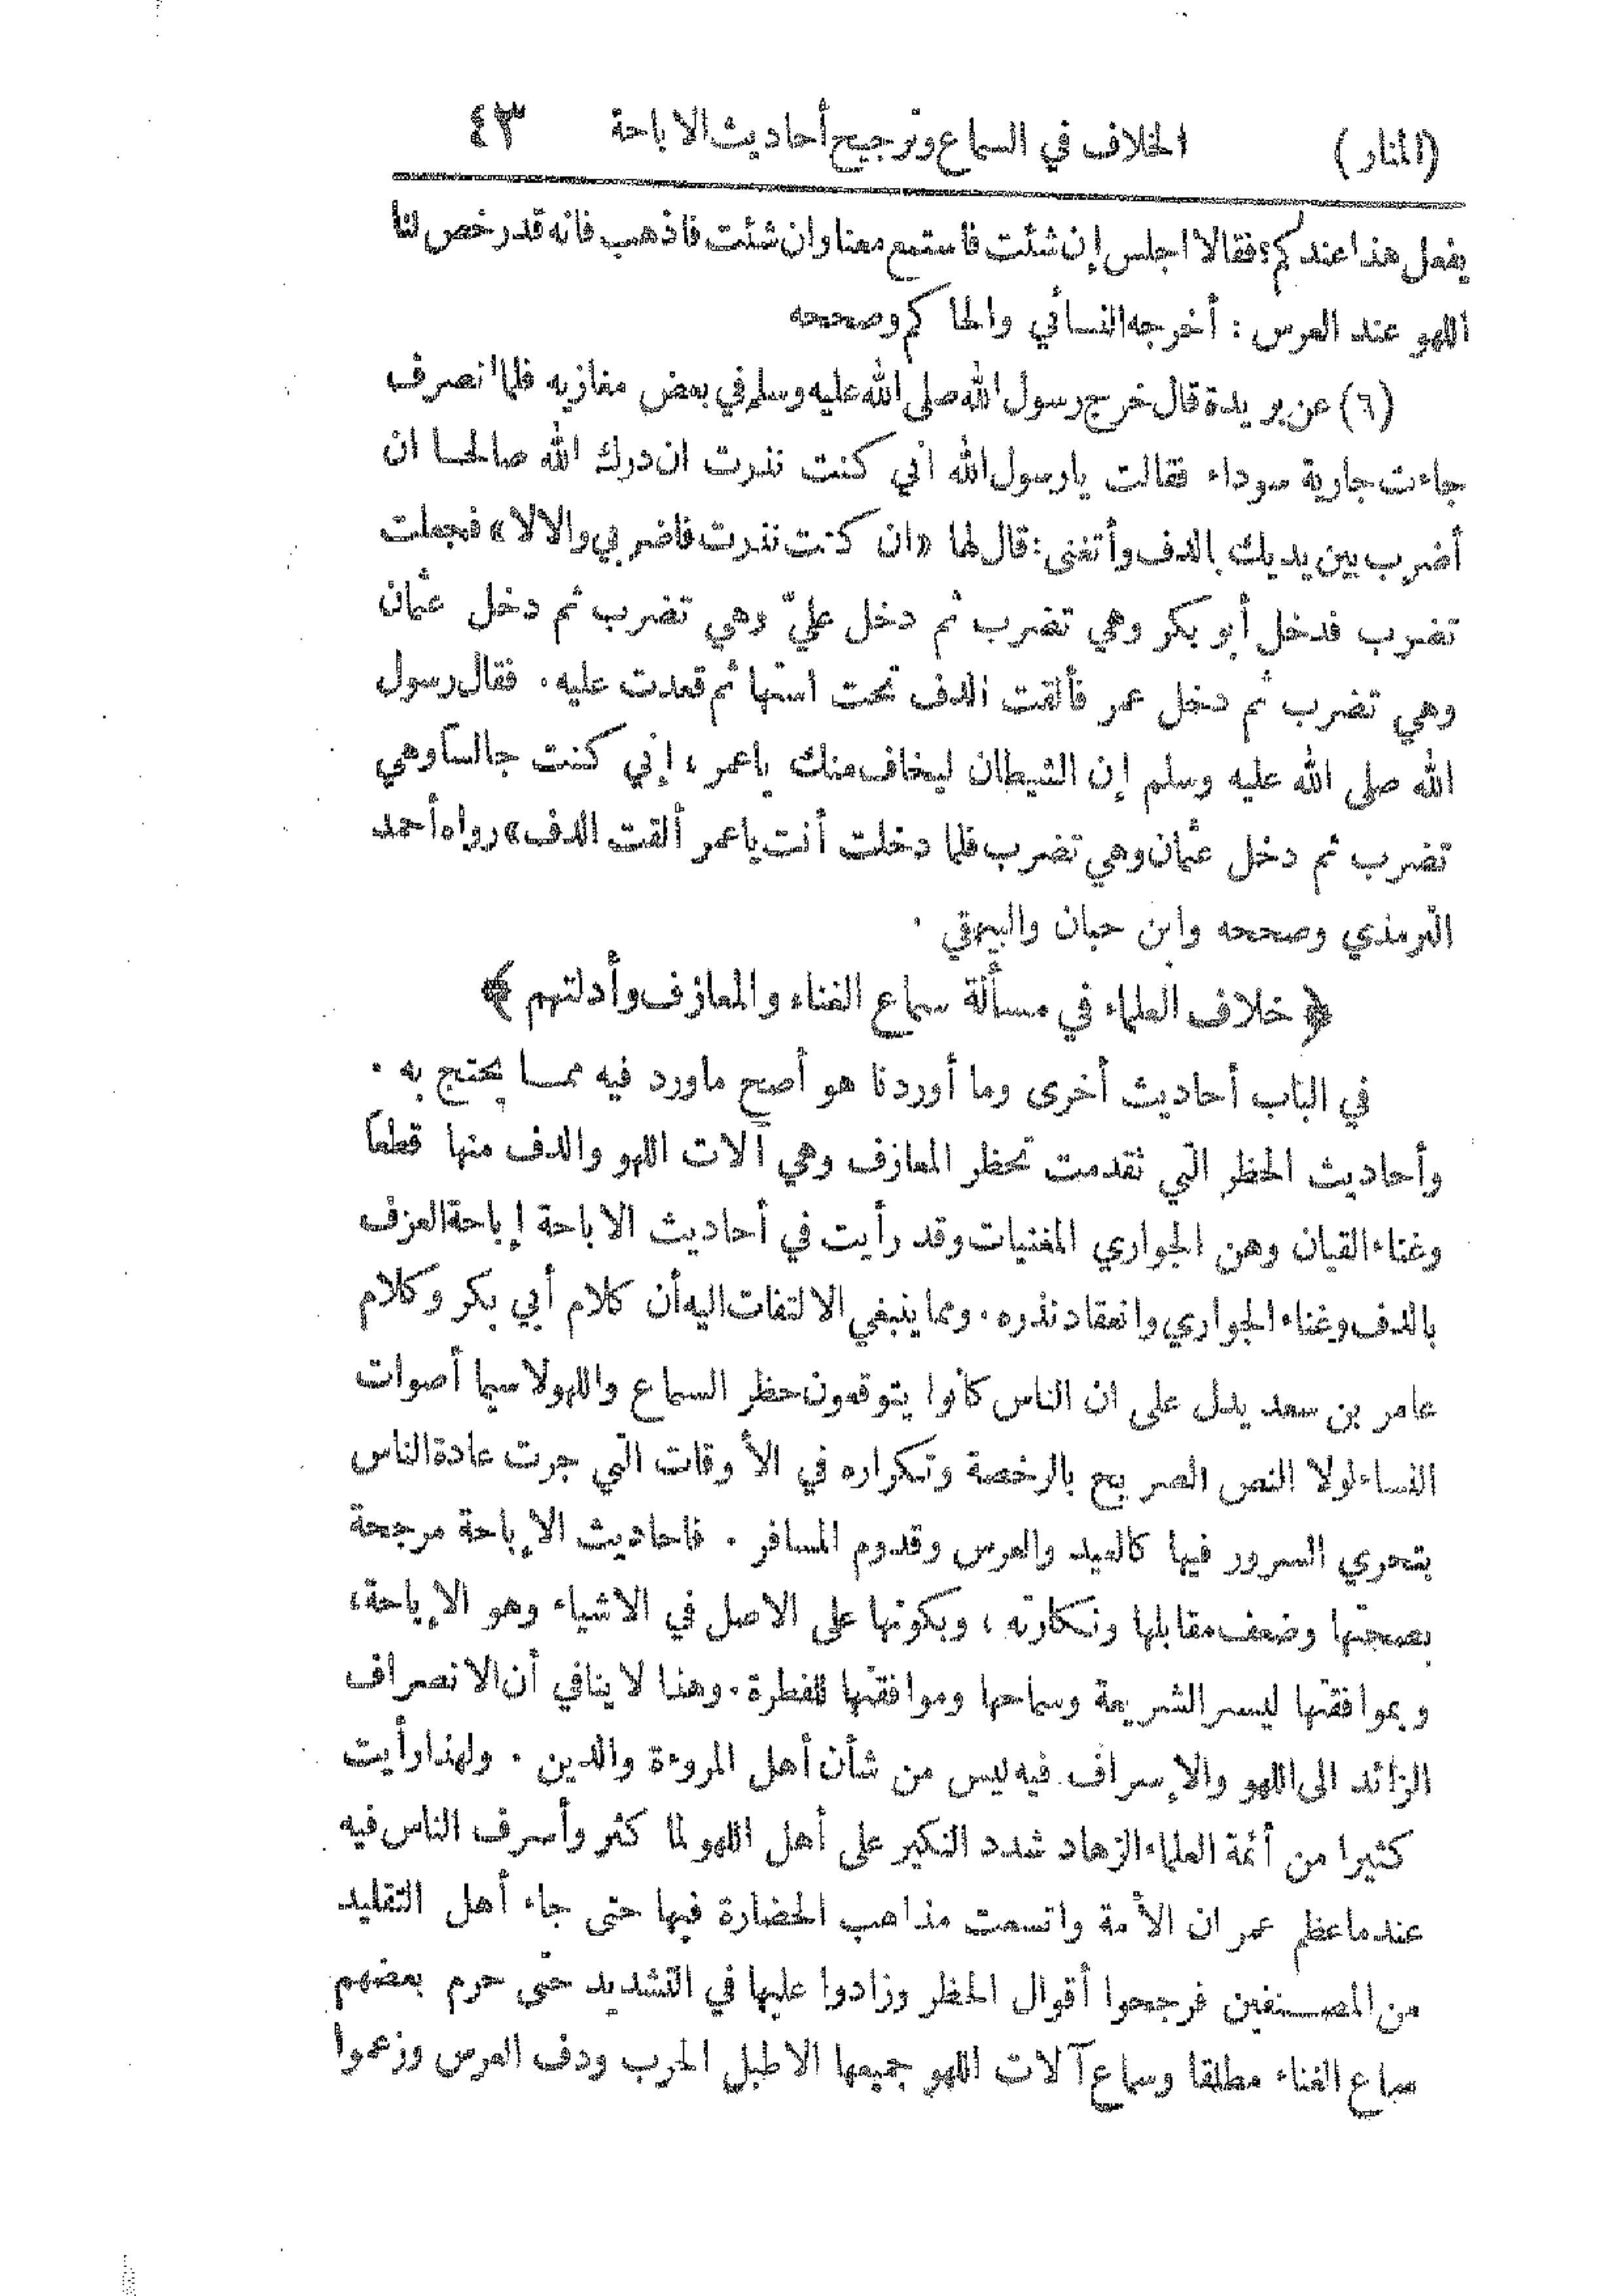 (المنار) الخلاف في السماع وترجيح أحاديث الاباحة ٤٣
يفعل هذا عندكم؟ فقالا اجلس إن شئت فاستمع معنا وان شئت فاذهب فانه قد رخص لنا
اللهو عند العرس : أخرجه النسائي والحاكم وصححه
(٦) عن بريدة قال خرج رسول الله صلى الله عليه وسلم في بعض مغازيه فلما انصرف
جاءت جارية سوداء فقالت يا رسول الله اني كنت نذرت ان ردك الله صالحا ان
أضرب بين يديك بالدف وأتغنى : قال لها «ان كنت نذرت فاضربي والا لا» فجعلت
تضرب فدخل أبو بكر وهي تضرب ثم دخل عليّ وهي تضرب ثم دخل عثمان
وهي تضرب ثم دخل عمر فألقت الدف تحت استها ثم قعدت عليه . فقال رسول
الله صلى الله عليه وسلم إن الشيطان ليخاف منك ياعمر ، إني كنت جالساً وهي
تضرب ثم دخل عثمان وهي تضرب فلما دخلت أنت ياعمر ألقت الدف» رواه أحمد
الترمذي وصححه وابن حبان والبيهقي .
﴿ خلاف العلماء في مسألة سماع الغناء والمعازف وأدلتهم ﴾
في الباب أحاديث أخرى وما أوردنا هو أصح ماورد فيه ممـا يحتج به .
وأحاديث الحظر التي تقدمت تحظر المعازف وهي آلات اللهو والدف منها قطعاً
وغناء القيان وهن الجواري المغنيات وقد رأيت في أحاديث الاباحة إباحة العزف
بالدف وغناء الجواري وانعقاد نذره . ومما ينبغي الالتفات اليه أن كلام أبي بكر وكلام
عامر بن سعد يدل على ان الناس كانوا يتوقعون حظر السماع واللهو لاسيما أصوات
النساء لولا النص الصريح بالرخصة وتكراره في الأوقات التي جرت عادة الناس
بتحري السرور فيها كالعيد والعرس وقدوم المسافر . فاحاديث الإباحة مرجحة
بصحتها وضعف مقابلها ونكارته ، وبكونها على الاصل في الاشياء وهو الإباحة ،
وبموافقتها ليسر الشريعة وسماحها وموافقتها للفطرة . وهذا لا ينافي أن الانصراف
الزائد الى اللهو والإسراف فيه ليس من شأن أهل المروءة والدين . ولهذا رأيت
كثيرا من أئمة العلماء الزهاد شدد النكير على أهل اللهو لما كثر وأسرف الناس فيه
عند ما عظم عمران الأمة واتسعت مذاهب الحضارة فيها حتى جاء أهل التقليد
من المصنفين فرجحوا أقوال الحظر وزادوا عليها في التشديد حتى حرم بعضهم
سماع الغناء مطلقا وسماع آلات اللهو جميعها الا طبل الحرب ودف العرس وزعموا